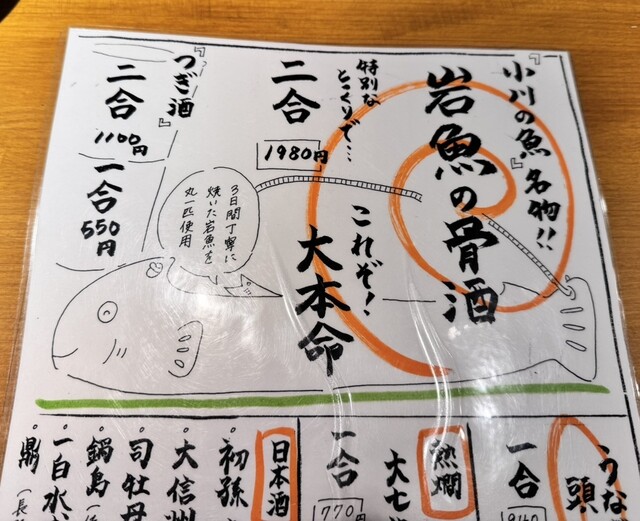 『小川の魚』名物!!
岩魚の骨酒
特別な
とっくりで…
二合
1980円
これぞ!
大本命
3日間丁寧に
焼いた岩魚を
丸一匹使用
『つぎ酒』
二合
1100円
一合
550円
うな
頭
一合
熱燗
大七
一合
770
日本酒
・初孫
・大信州
・司牡丹
・鍋島
・一白水
・鼎